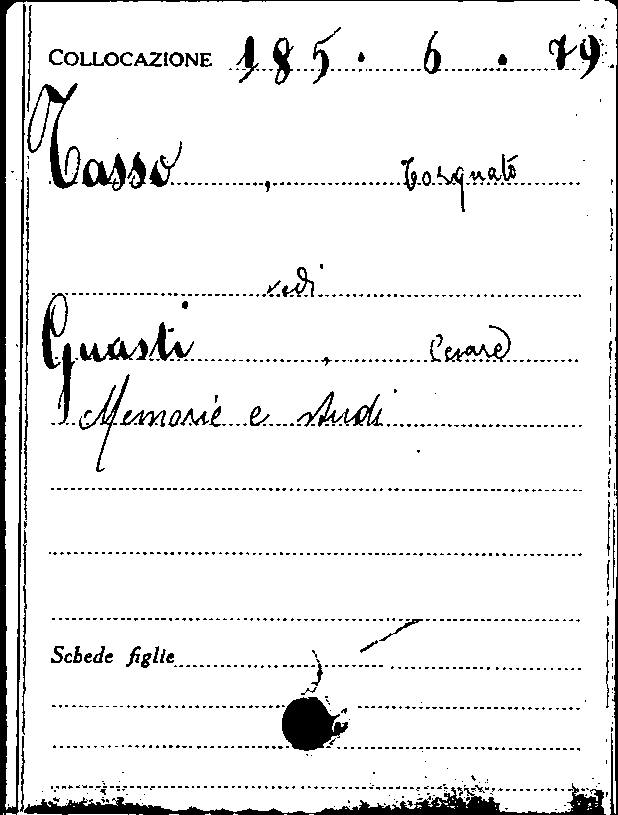 COLLOCAZIONE 185. 6. 79
Tasso, Torquato
vedi
Guasti, Cesare
Memorie e studi
Schede figlie